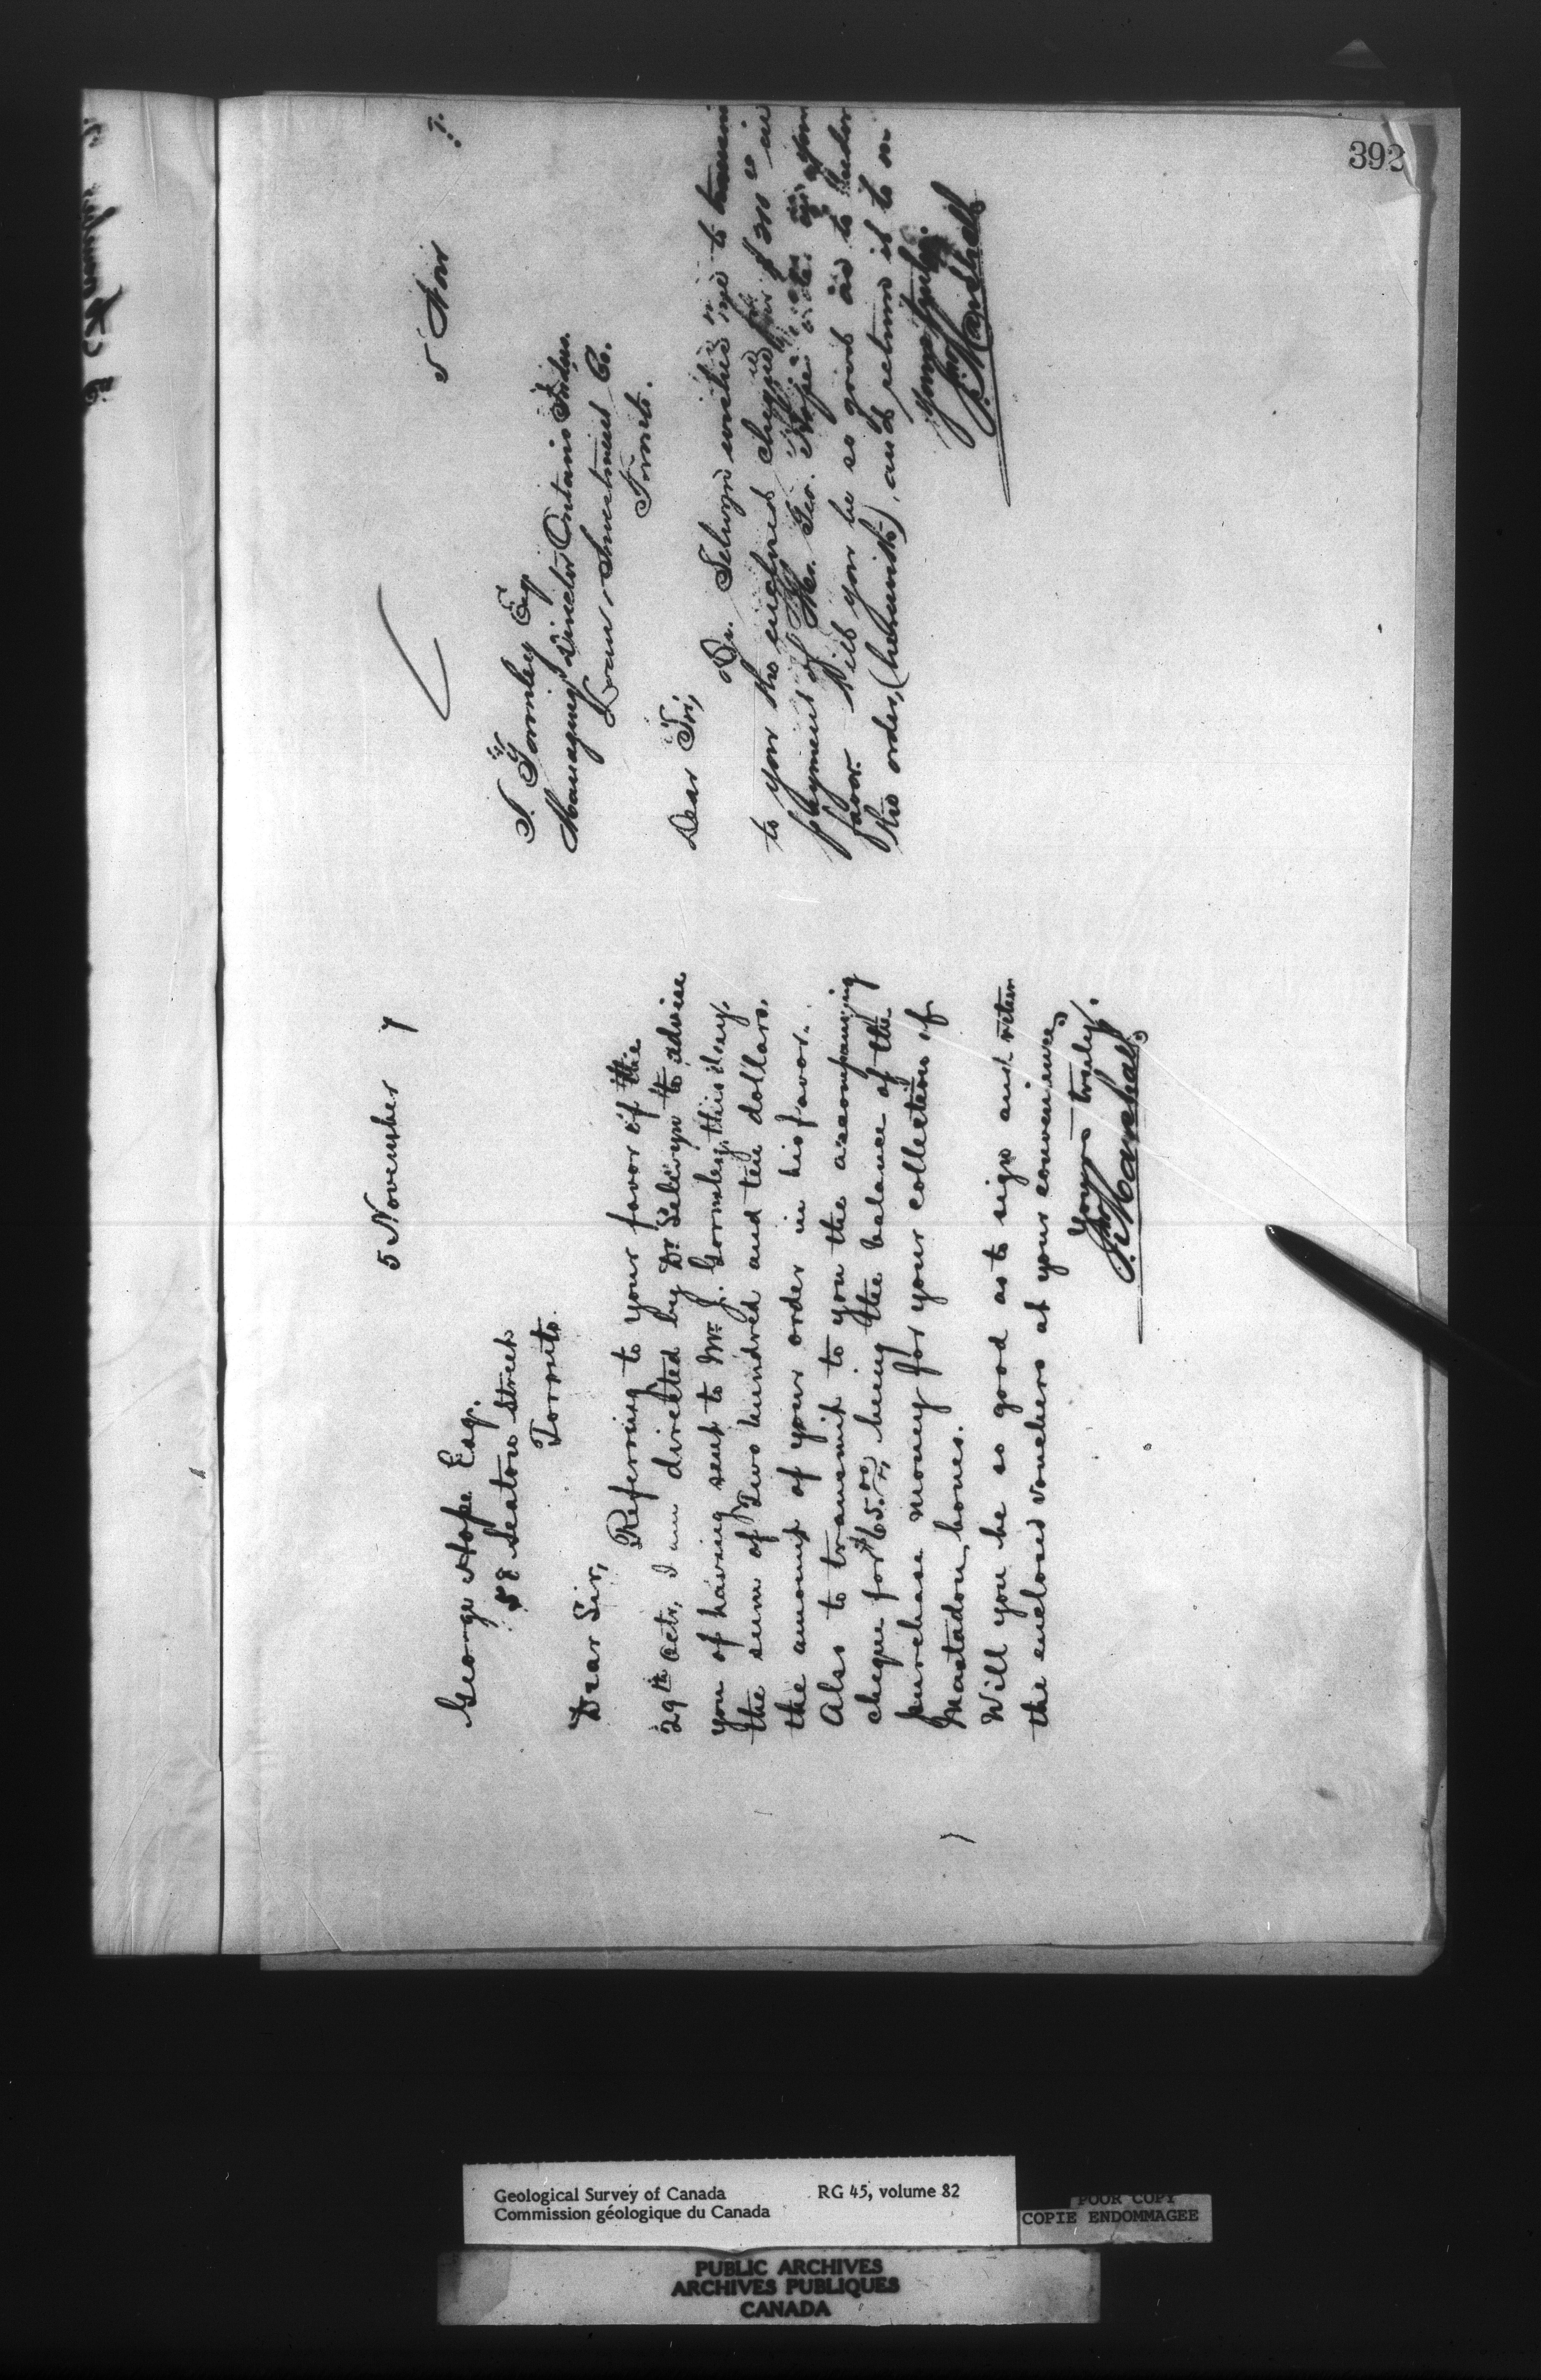 392
5 November 7
George Hope Esq.
58 Seaton Street
Toronto.
Dear Sir,
Referring to your favor of the
29th Octr, I am directed by Dr Selwyn to advise
you of having sent to Mr J. Gormley, this day,
the sum of Two hundred and ten dollars,
the amount of your order in his favor.
Also to transmit to you the accompanying
cheque for $65.00, being the balance of the
purchase money for your collection of
Mastadon bones.
Will you be so good as to sign and return
the enclosed vouchers at your convenience,
Yours truly,
Jno Marshall
5 Nov 7.
J. Gormley Esq
Managing Director Ontario Indus.
Loan & Investment Co.
Toronto.
Dear Sir,
Dr. Selwyn wishes me to
to you the enclosed cheque for $210.00 in
payment of Mr. Geo. Hope's order in your
favor. Will you be so good as to
the order, (herewith), and return it to m
Yours truly,
Jno Marshall
Geological Survey of Canada RG 45, volume 82
Commission géologique du Canada
POOR COPY
COPIE ENDOMMAGEE
PUBLIC ARCHIVES
ARCHIVES PUBLIQUES
CANADA